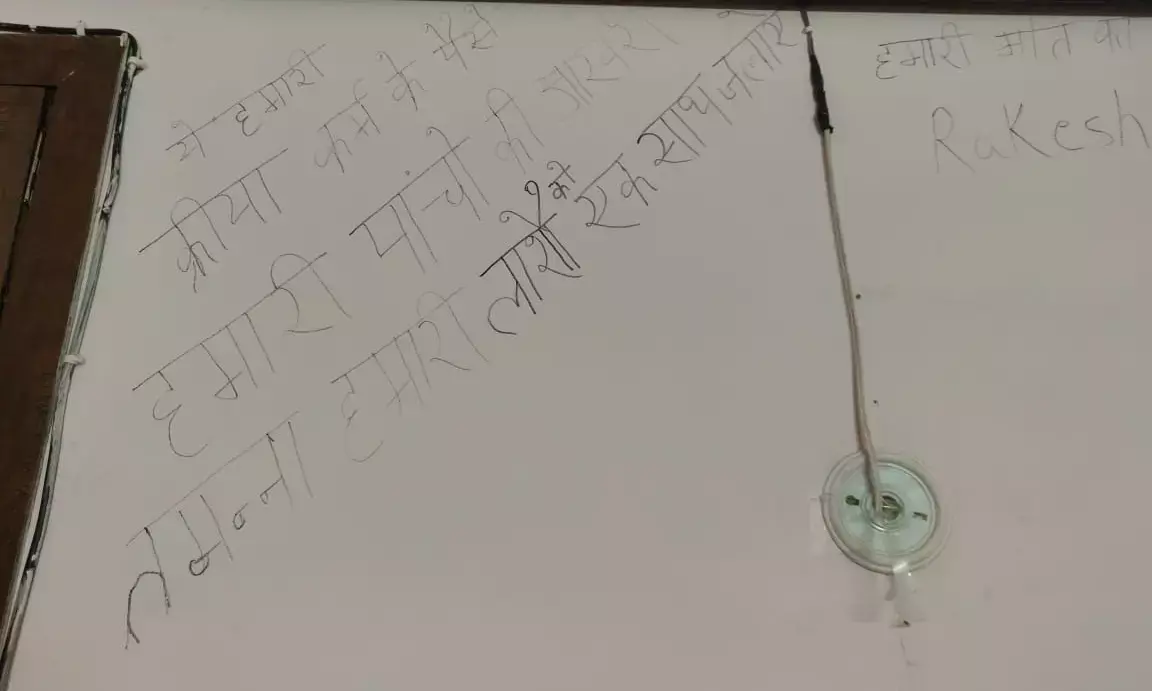 ये हमारी
क्रीया कर्म के पैसे
हमारी पांचो की आखरी
तमन्ना हमारी लाशो को एक साथ जलाये
हमारी मौत का
Rakesh